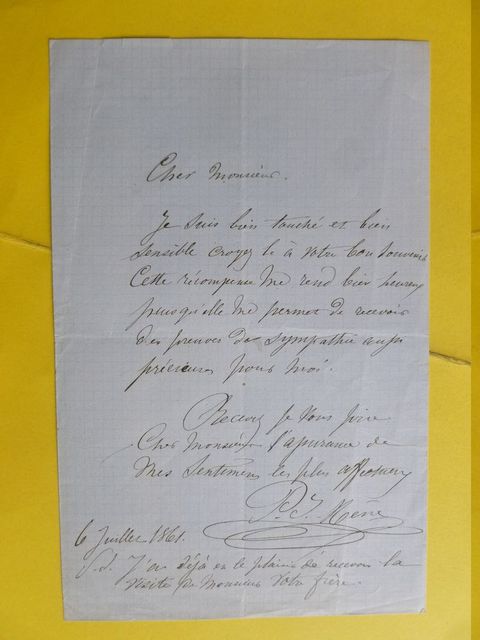 Cher Monsieur.
Je suis bien touché et bien
sensible croyez le à votre bon souvenir
Cette récompense me rend bien heureux
puisqu'elle me permet de recevoir
des preuves de sympathie aussi
précieuses pour moi.
Recevez je vous prie
Cher Monsieur l'assurance de
mes sentiments les plus affectueux
P. J. Mène
6 Juillet 1861.
J'ai déjà eu le plaisir de recevoir la
visite de Monsieur votre frère.